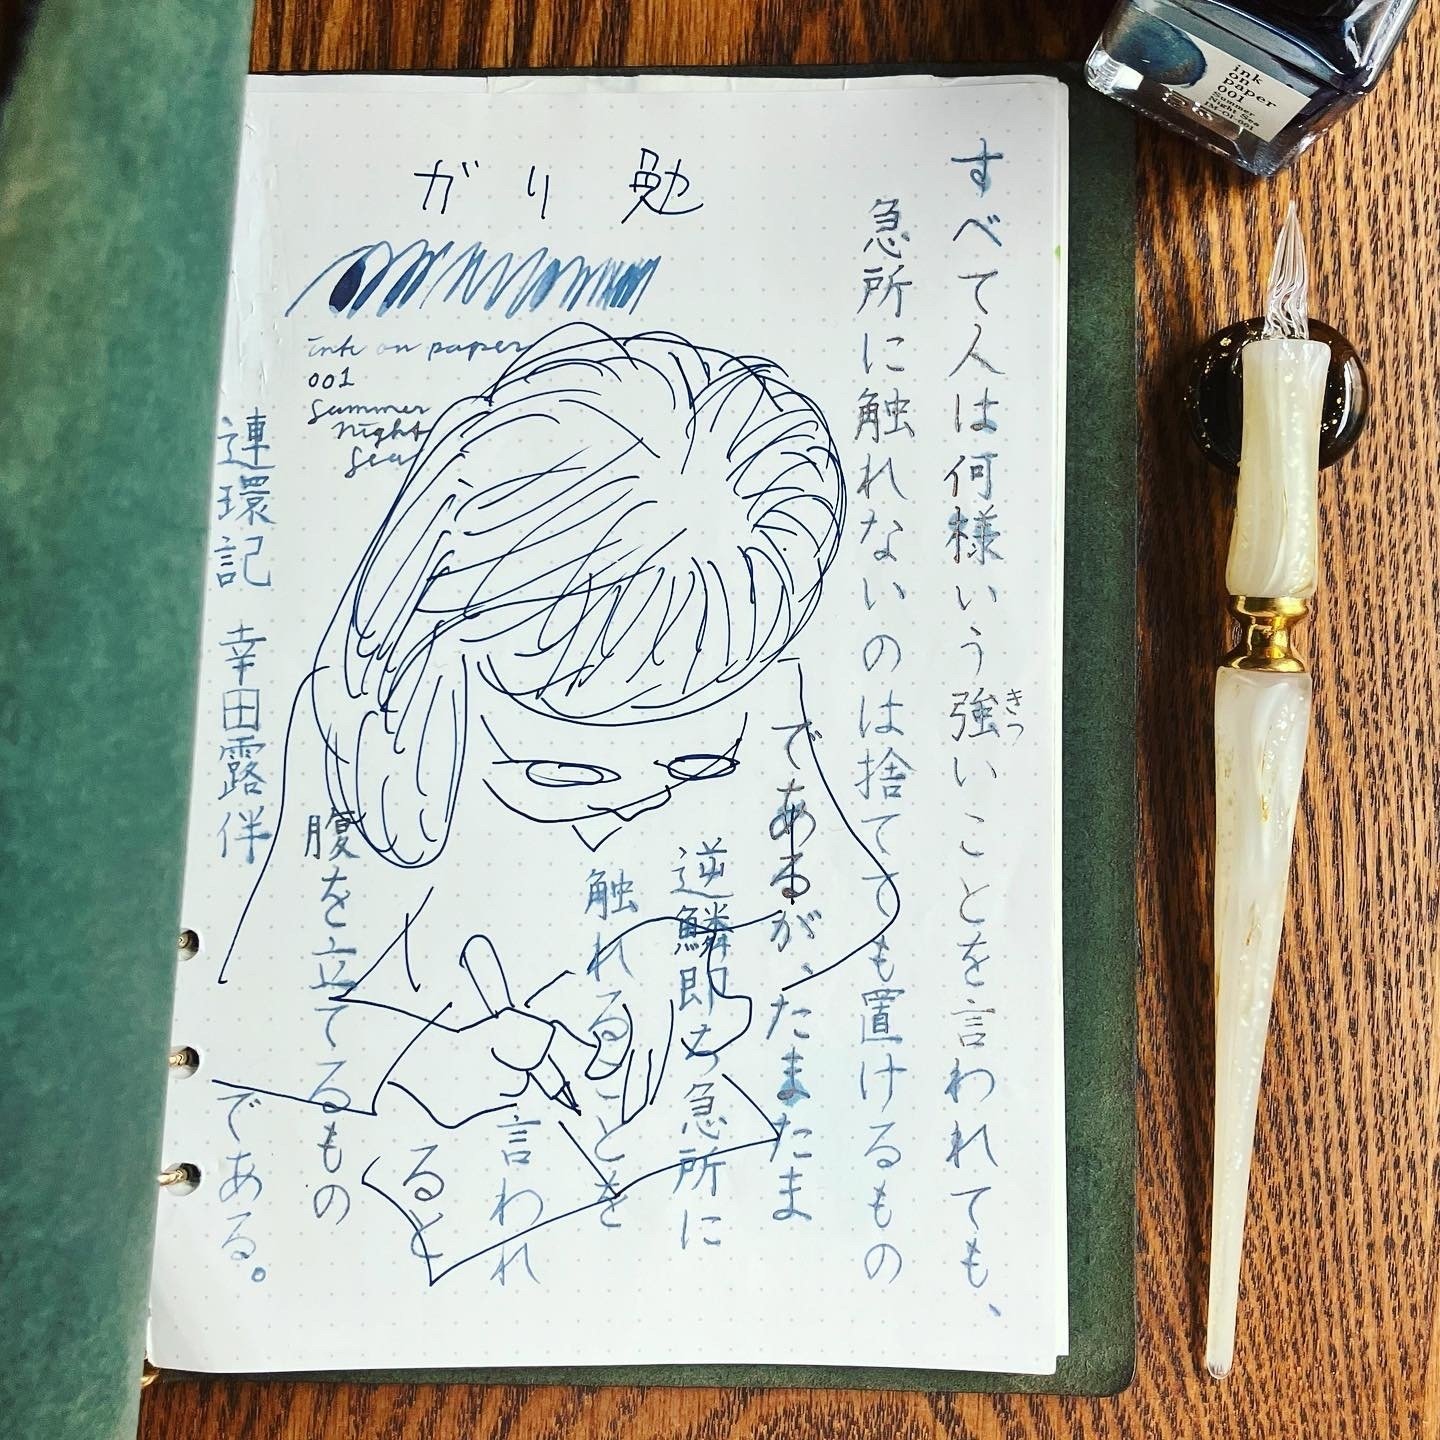 ガリ勉
ink on paper
001
Summer
Night
Sea
すべて人は何様いう強いことを言われても、
きつ
急所に触れないのは捨てても置けるもの
であるが、たまたま
逆鱗即ち急所に
触れることを
言われ
ると
腹を立てるもの
である。
連環記 幸田露伴
ink
on
paper
001
Summer
Night Sea
IM-OI-001